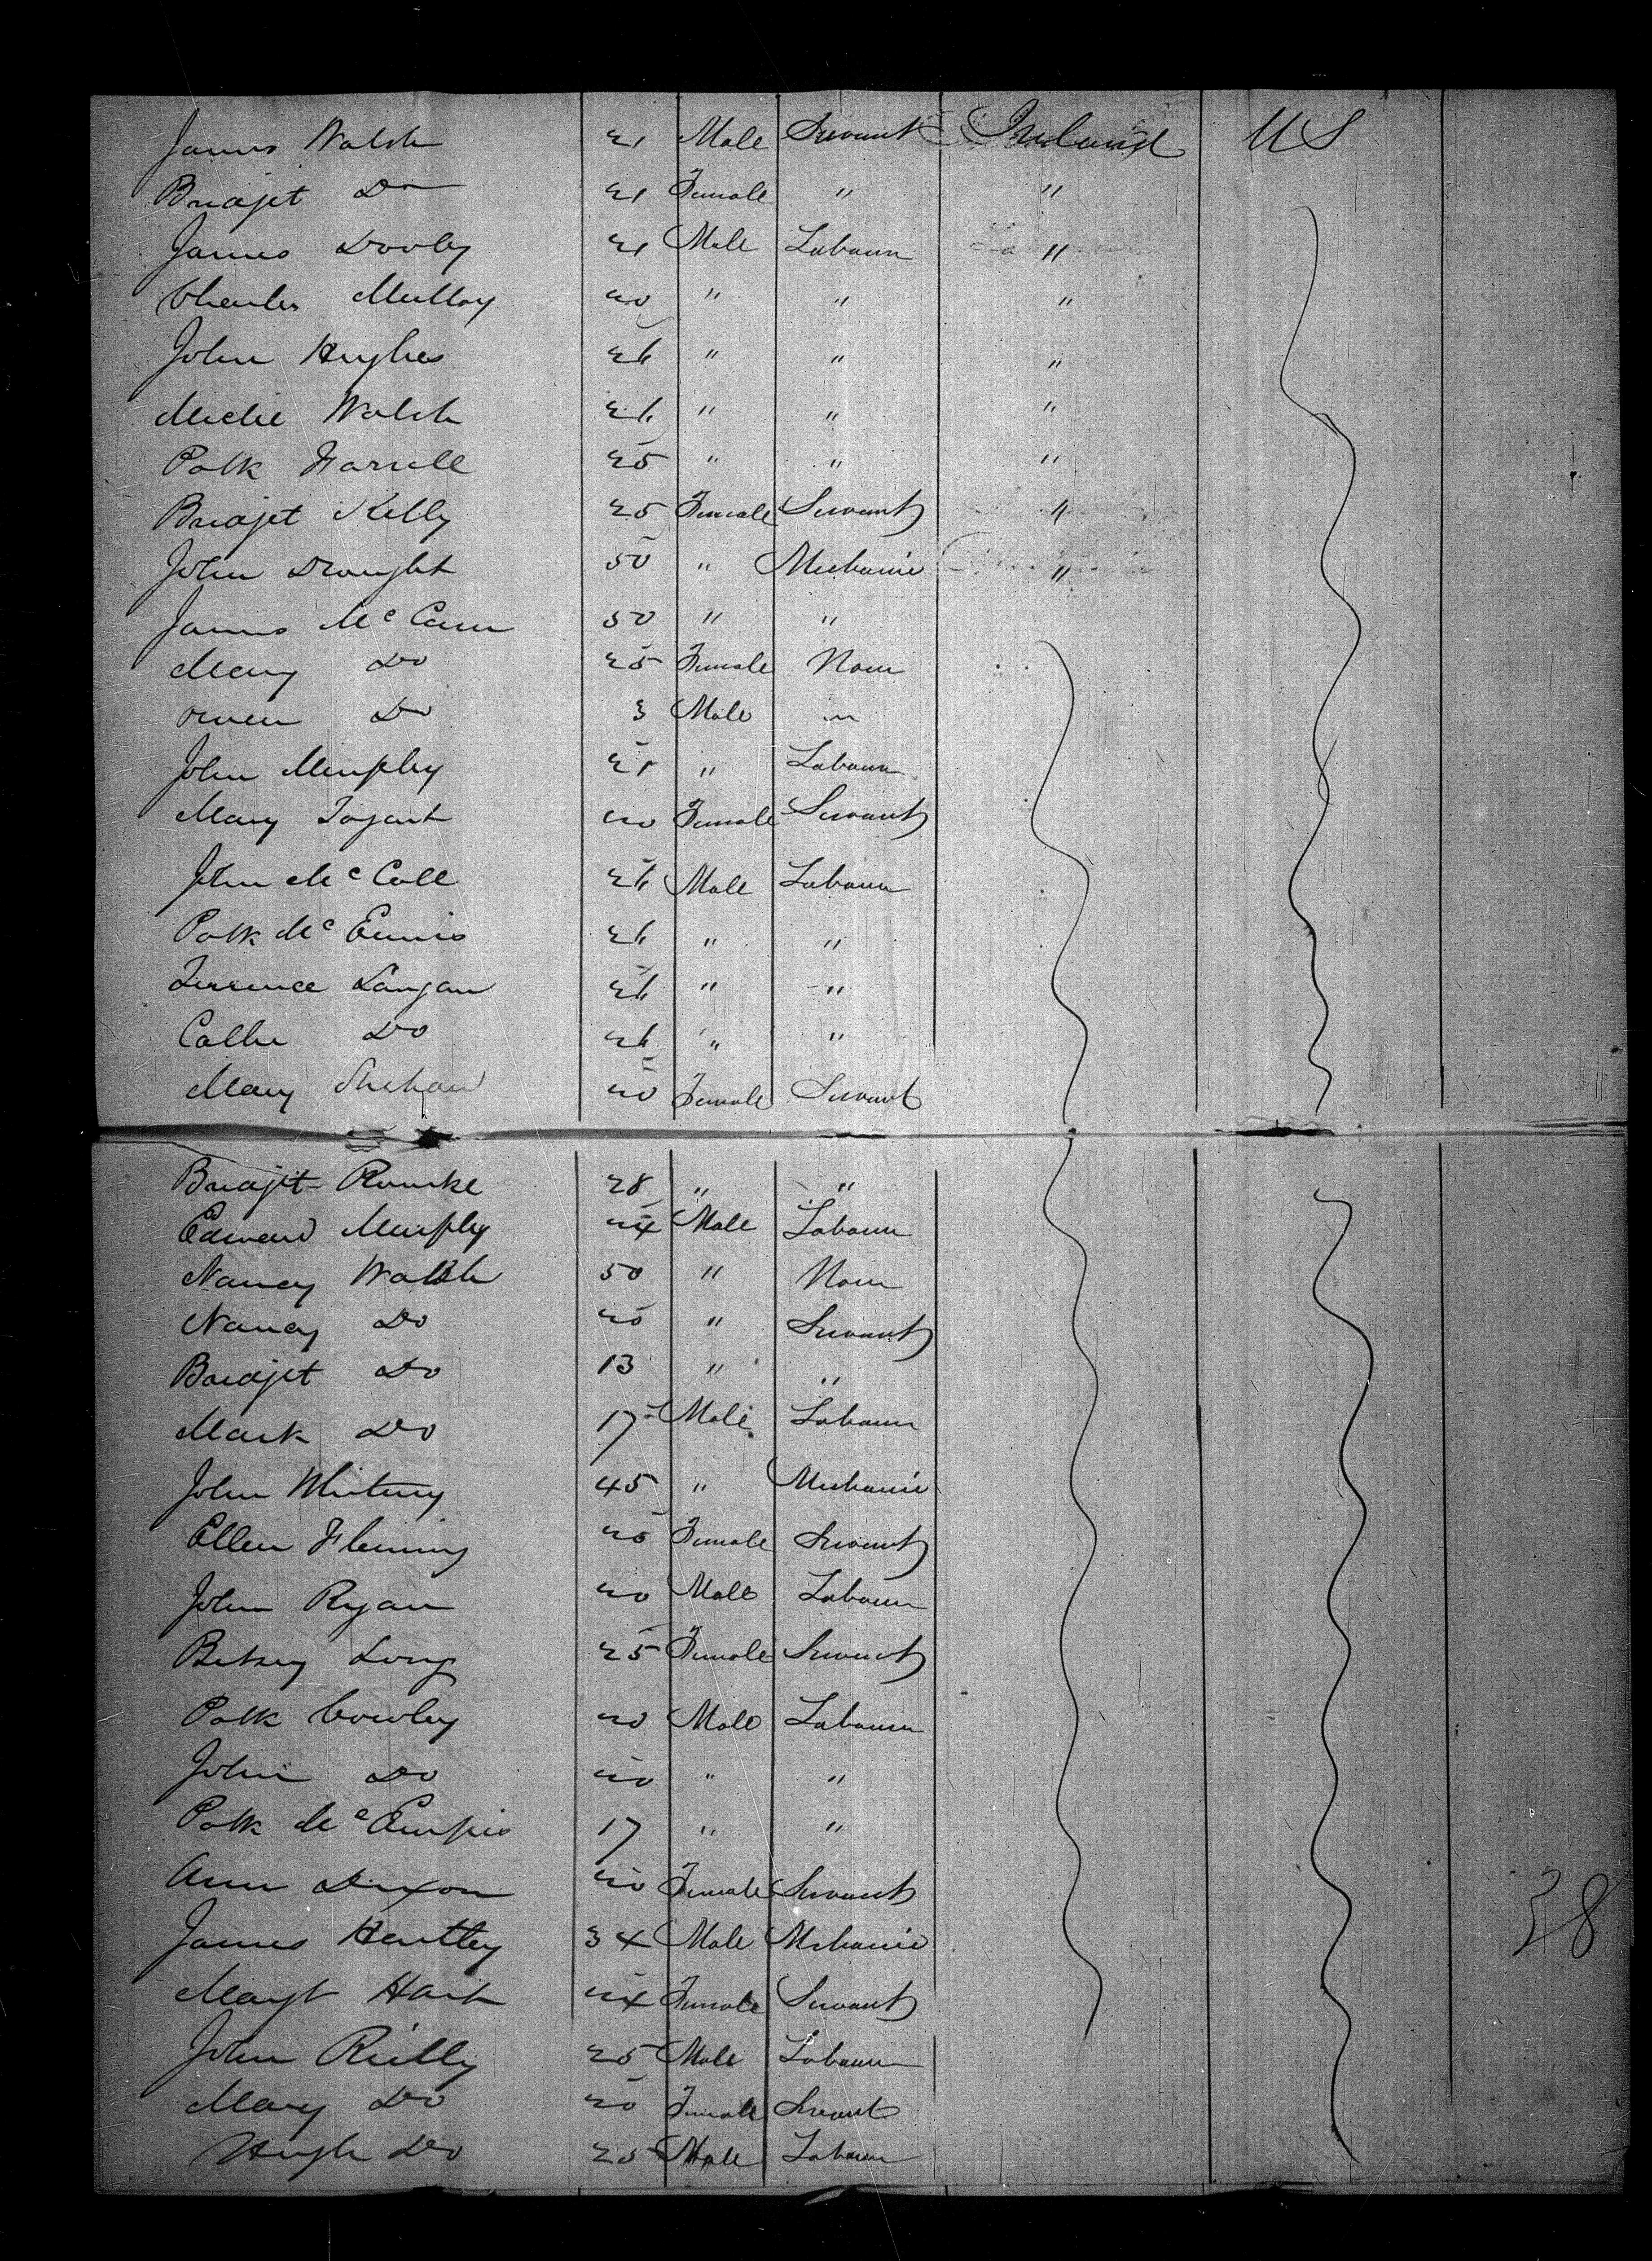 James Walsh 21 Male Servant Ireland U S
Bridget Do 21 Female " "
James Dooly 21 Male Labourer "
Charles Mulloy 20 " " "
John Hughes 26 " " "
Michl Walsh 26 " " "
Patk Farrell 25 " " "
Bridget Kelly 25 Female Servant "
John Drought 50 " Mechanic "
James McCann 50 " "
Mary Do 25 Female None
Owen Do 3 Male "
John Murphy 21 " Labourer
Mary Tagart 20 Female Servant
John McCall 26 Male Labourer
Patk McEnnis 26 " "
Terrence Langan 26 " "
Do 26 " "
Mary Shehan 20 Female Servant
Bridget Rourke 28 " "
Edward Murphy 24 Male Labourer
Nancy Walsh 50 " None
Nancy Do 20 " Servant
Bridget Do 13 " "
Mark Do 17 Male Labourer
John Whitney 45 " Mechanic
Ellen Fleming 25 Female Servant
John Ryan 20 Male Labourer
Betsey Long 25 Female Servant
Patk Cowley 20 Male Labourer
John Do 20 " "
Patk 17 " "
Ann Dixon 20 Female Servant
James Hentley 34 Male Mechanic
Margt Hart 24 Female Servant
John Reilly 25 Male Labourer
Mary Do 20 Female Servant
Hugh Do 25 Male Labourer
38